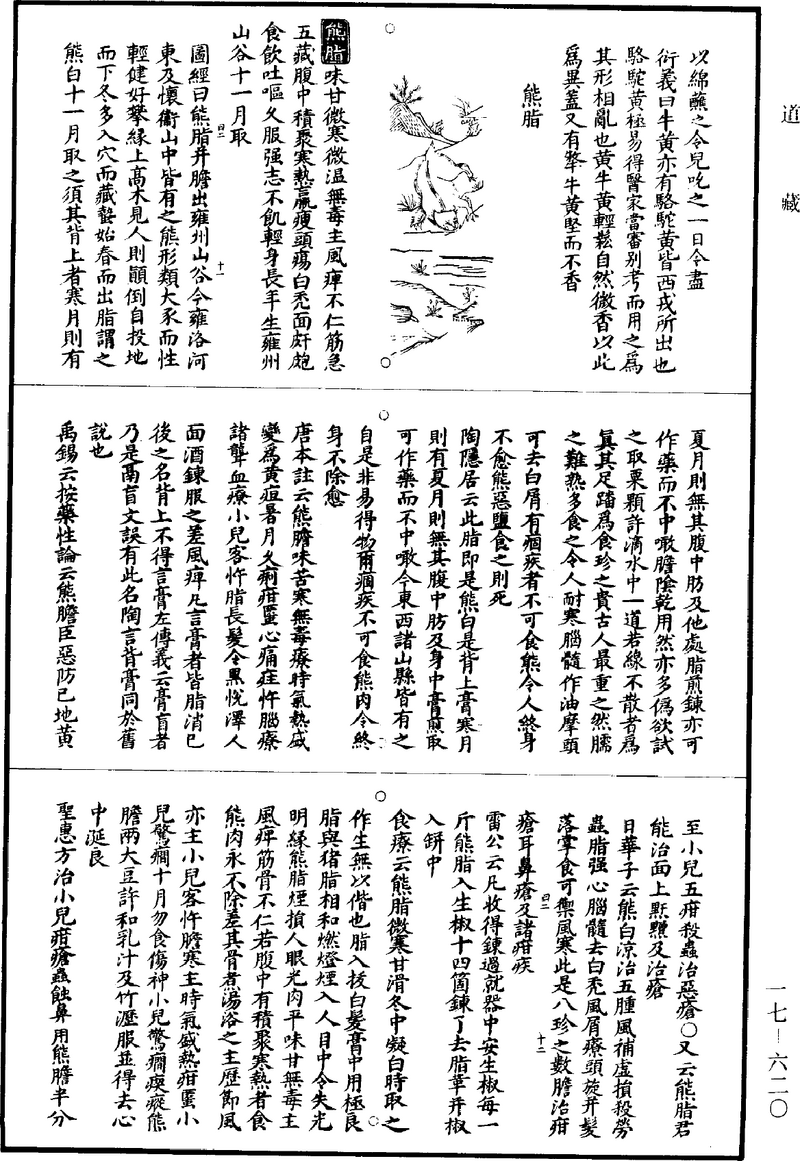 道藏
以綿蘸之令兒吃之一日令盡
衍義曰牛黃亦有駱駝黃皆西戎所出也
駱駝黃極易得醫家當審別考而用之爲
其形相亂也黃牛黃輕鬆自然微香以此
爲異蓋又有犛牛黃堅而不香
熊脂
熊脂味甘微寒微溫無毒主風痺不仁筋急
五藏腹中積聚寒熱羸瘦頭瘍白禿面皯皰
食飲吐嘔久服强志不飢輕身長年生雍州
山谷十一月取
圖經曰熊脂并膽出雍州山谷今雍洛河
東及懷衞山中皆有之熊形類大豕而性
輕健好攀緣上高木見人則顚倒自投地
而下冬多入穴而藏蟄始春而出脂謂之
熊白十一月取之須其背上者寒月則有
夏月則無其腹中肪及他處脂煎鍊亦可
作藥而不中噉膽陰乾用然亦多僞欲試
之取粟顆許滴水中一道若線不散者爲
眞其足蹯爲食珍之貴古人最重之然胹
之難熟多食之令人耐寒腦髓作油摩頭
可去白屑有痼疾者不可食熊令人終身
不愈熊惡鹽食之則死
陶隱居云此脂即是熊白是背上膏寒月
則有夏月則無其腹中肪及身中膏煎取
可作藥而不中噉今東西諸山縣皆有之
自是非易得物爾痼疾不可食熊肉令終
身不除愈
唐本註云熊膽味苦寒無毒療時氣熱盛
變爲黃疸暑月久痢疳䘌心痛疰忤腦療
諸聾血療小兒客忤脂長髮令黑悅澤人
面酒鍊服之差風痺凡言膏者皆脂消已
後之名背上不得言膏左傳義云膏肓者
乃是鬲肓文誤有此名陶言背膏同於舊
說也
禹錫云按藥性論云熊膽臣惡防已地黃
至小兒五疳殺蟲治惡瘡○又云熊脂君
能治面上䵟䵳及治瘡
日華子云熊白凉治五腫風補虛損殺勞
蟲脂强心腦髓去白禿風屑療頭旋并髮
落掌食可禦風寒此是八珍之數膽治疳
瘡耳鼻瘡及諸疳疾
雷公云凡收得鍊過就器中安生椒每一
斤熊脂入生椒十四箇鍊了去脂革并椒
入鉼中
食療云熊脂微寒甘滑冬中凝白時取之
作生無以偕也脂入拔白髮膏中用極良
脂與猪脂相和燃燈煙入人目中令失光
明緣熊脂煙損人眼光肉平味甘無毒主
風痺筋骨不仁若腹中有積聚寒熱者食
熊肉永不除差其骨煮湯浴之主歷節風
亦主小兒客忤膽寒主時氣盛熱疳䘌小
兒驚癇十月勿食傷神小兒驚癇瘈瘲熊
膽兩大豆許和乳汁及竹瀝服並得去心
中涎良
聖惠方治小兒疳瘡蟲蝕鼻用熊膽半分
一七—六二〇